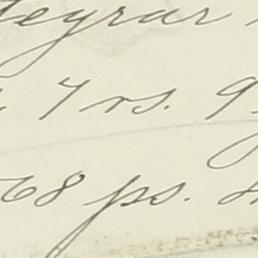 teyrar
7 rs. 9
68 ps.